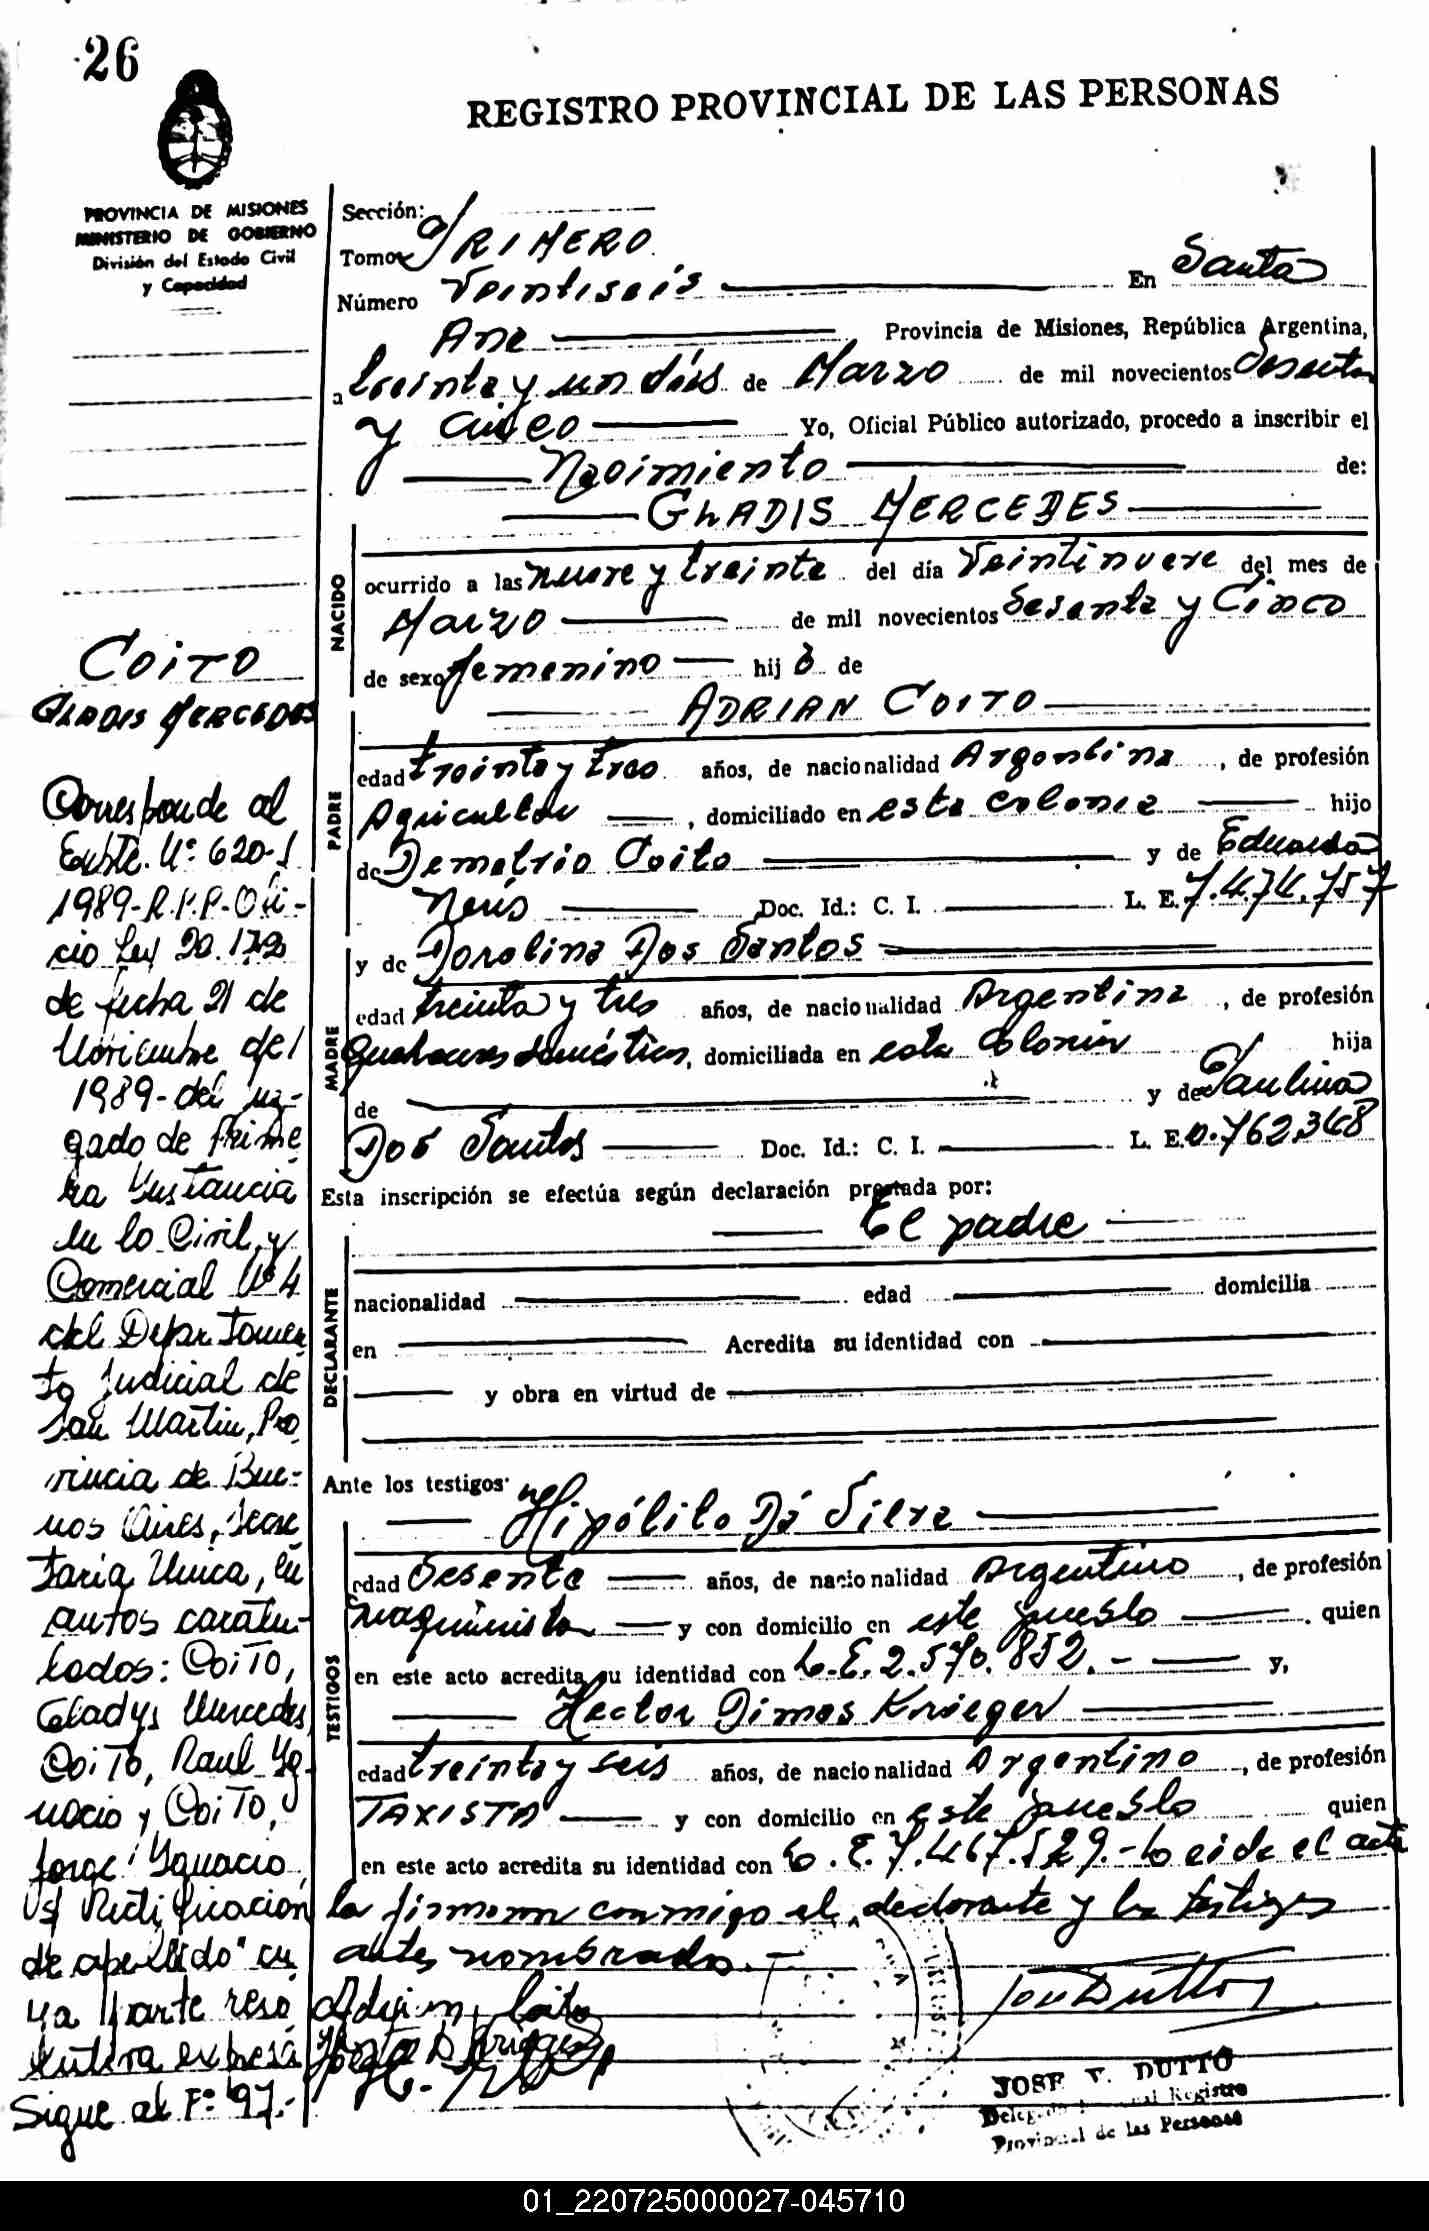 26
REGISTRO PROVINCIAL DE LAS PERSONAS
PROVINCIA DE MISIONES
MINISTERIO DE GOBIERNO
División del Estado Civil
y Capacidad
Sección:
Tomo PRIMERO
Número Veintiseis En Santa
Ana Provincia de Misiones, República Argentina,
a treinta y un días de Marzo de mil novecientos sesenta
y cinco Yo, Oficial Público autorizado, procedo a inscribir el
Nacimiento de:
GLADIS MERCEDES
NACIDO
ocurrido a las nueve y treinta del día Veintinueve del mes de
Marzo de mil novecientos Sesenta y Cinco
de sexo femenino hij a de
ADRIAN COITO
PADRE
edad treinta y tres años, de nacionalidad Argentina, de profesión
Agricultor, domiciliado en esta colonia hijo
de Demetrio Coito y de Eduarda
Neris Doc. Id.: C. I. L. E. 7.474.757
y de Dorolina Dos Santos
MADRE
edad treinta y tres años, de nacionalidad Argentina, de profesión
quehaceres domésticos, domiciliada en esta Colonia hija
de y de Paulina
Dos Santos Doc. Id.: C. I. L. E. 0.762.368
Esta inscripción se efectúa según declaración prestada por:
El padre
DECLARANTE
nacionalidad edad domicilia
en Acredita su identidad con
y obra en virtud de
Ante los testigos:
Hipólito Da Silva
TESTIGOS
edad Sesenta años, de nacionalidad Argentino, de profesión
maquinista y con domicilio en este pueblo, quien
en este acto acredita su identidad con L.E. 2.570.852.- y,
Hector Dimas Krieger
edad treinta y seis años, de nacionalidad Argentino, de profesión
TAXISTA y con domicilio en este pueblo quien
en este acto acredita su identidad con L.E. 7.467.529.- Leida el acta
la firmaron conmigo el declarante y los testigos
antes nombrados.-
Adrian Coito
JOSE V. DUTTO
Registro
Provincial de las Personas
COITO
GLADIS MERCEDES
Corresponde al
Expte. Nº 620-J
1989-R.P.P-Ofi-
cio Ley 20.172
de fecha 21 de
Noviembre de
1989-del Juz-
gado de Prime
ra Instancia
en lo Civil y
Comercial Nº 4
del Departamen
to Judicial de
San Martin, Pro
vincia de Bue-
nos Aires, Secre
taria Unica, en
autos caratu-
lados: COITO,
Gladys Mercedes,
COITO, Raul Yg-
nacio y COITO,
Jorge Ygnacio
s/ Rectificacion
de apellido" cu
ya parte reso
lutiva expresa
Sigue al Fº 97.-
01_220725000027-045710